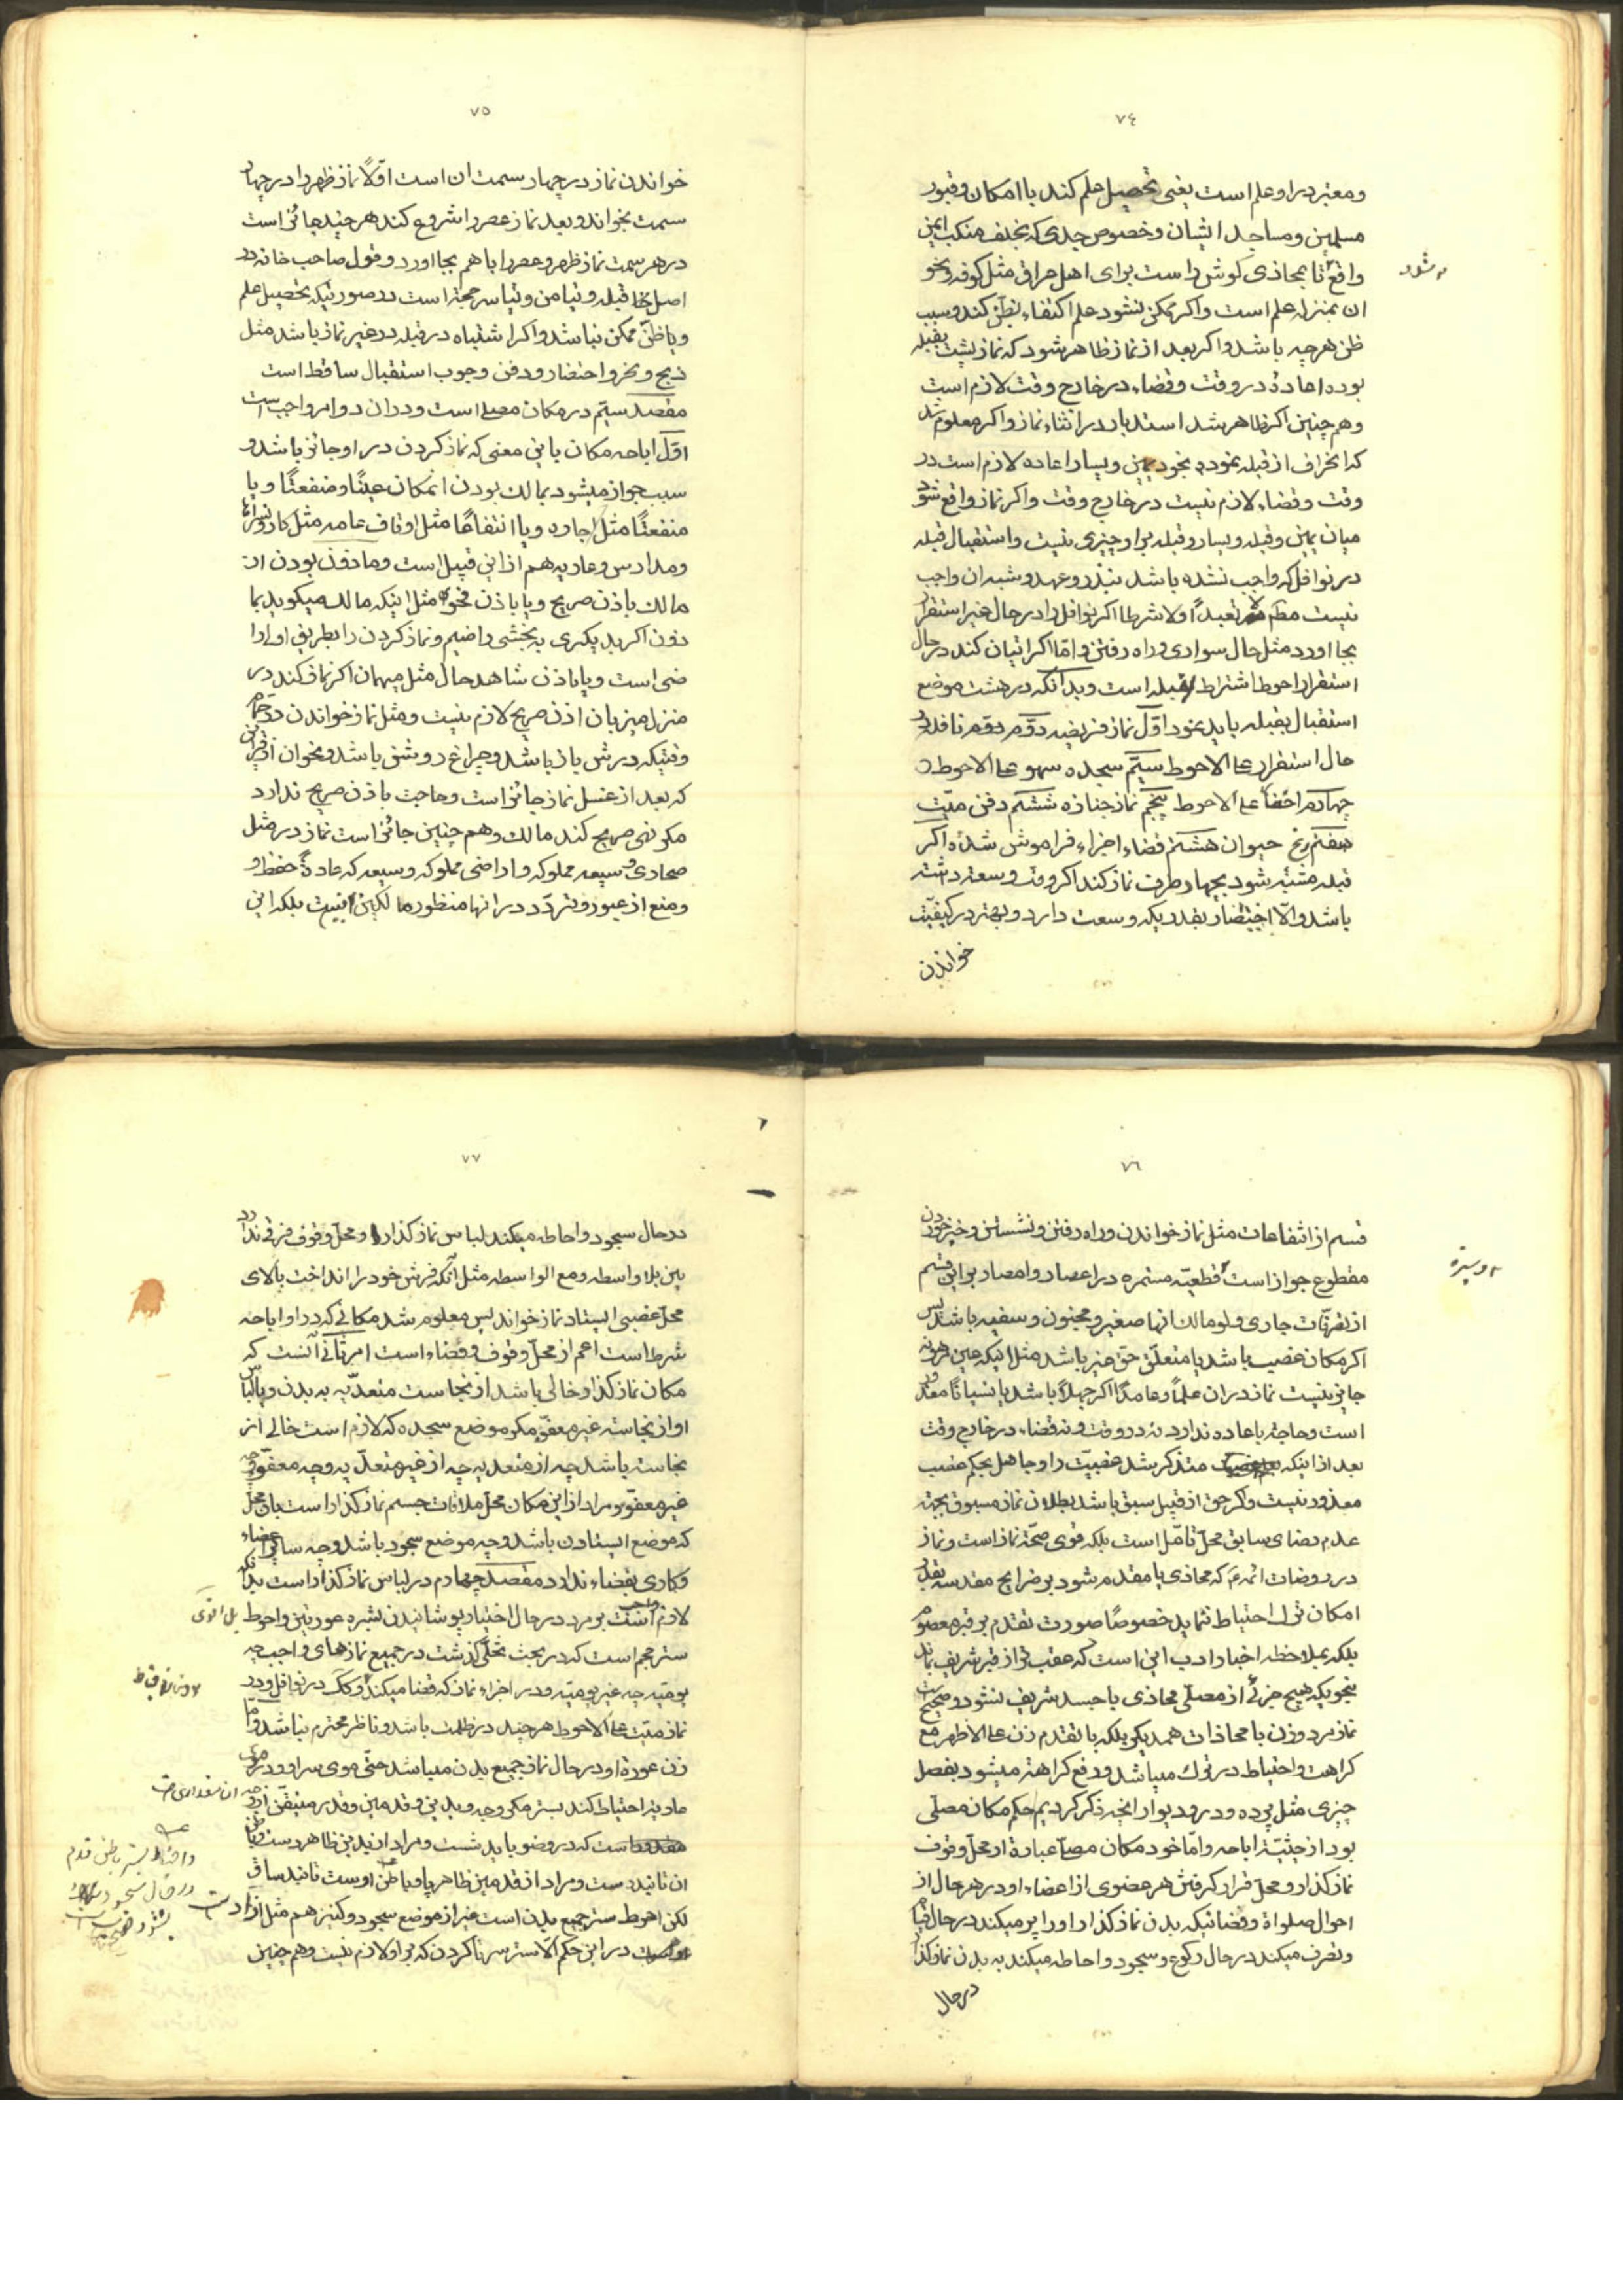 ٧٤
ومعتبر در او علم است یعنی تحصیل علم کند با امکان و قبور
مسلمین ومساجد ایشان وخصوص جدی که بخلف منکب ایمن
واقع تا محاذی کوش راست برای اهل عراق مثل کوفه ونحو
شود
ان بمنزله علم است واکر ممکن نشود علم اکتفاء بظن کند وسبب
ظن هرچه باشد واکر بعد از نماز ظاهر شود که نماز پشت بقبله
بوده اعادة در وقت وقضاء در خارج وقت لازم است
وهم چنین اکر ظاهر شد استدبار در اثناء نماز واکر معلوم شد
که انحراف از قبله بنحو یمین ویسار اعاده لازم است در
وقت وقضاء لازم نیست در خارج وقت واکر نماز واقع شود
میان یمین وقبله ویسار وقبله بر او چیزی نیست واستقبال قبله
در نوافل که واجب نشده باشد بنذر وعهد وشبه ان واجب
نیست تعبداً ولا شرطا اکر نوافل را در حال غیر استقرار
بجا اورد مثل حال سواری وراه رفتن واما اکر اتیان کند در حال
استقرار احوط اشتراط قبله است وبدانکه در هشت موضع
استقبال بقبله باید نمود اوّل نماز فریضه دوّم نافله در
حال استقرار علی الاحوط سیّم سجده سهو علی الاحوط
چهارم علی الاحوط پنجم نماز جنازه ششم دفن میّت
هفتم ذبح حیوان هشتم قضاء اجزاء فراموش شده اکر
قبله مشتبه شود بچهار طرف نماز کند اکر وقت وسعت داشته
باشد والّا بقدریکه وسعت دارد وبهتر در کیفیّت
خواندن
٧٥
خواندن نماز در چهار سمت ان است اوّلاً نماز ظهر را در چهار
سمت بخواند وبعد نماز عصر را شروع کند هر چند جائز است
در هر سمت نماز ظهر وعصر را با هم بجا اورد وقول صاحب خانه در
اصل قبله وتیامن وتیاسر حجة است در صورتیکه تحصیل علم
ویا ظنّ ممکن نباشد واکر اشتباه در قبله در غیر نماز باشد مثل
ذبح ونحر واحتضار ودفن وجوب استقبال ساقط است
مقصد سیّم در مکان مصلی است ودر ان دو امر واجب است
اوّل اباحه مکان باین معنی که نماز کردن در او جائز باشد و
سبب جواز میشود بمالک بودن انمکان عیناً ومنفعتًا ویا
منفعتًا مثل اجاره ویا انتفاعًا مثل اوقاف عامه مثل کاروانسرا
ومدارس وعاریه هم از این قبیل است وماذون بودن از
مالک باذن صریح ویا باذن فحوی مثل اینکه مالک میکوید بما
ذون اکر بدیکری به بخشی راضیم ونماز کردن را بطریق اولی را
ضی است ویا باذن شاهد حال مثل میهمان اکر نماز کند در
منزل میزبان اذن صریح لازم نیست ومثل نماز خواندن در حمام
وقتیکه درش باز باشد وچراغ روشن باشد ونحو ان از قراین
که بعد از غسل نماز جائز است وحاجت باذن صریح ندارد
مکر نهی صریح کند مالک وهم چنین جائز است نماز در مثل
صحاری وسیعه مملوکه واراضی مملوکه وسیعه که عادةً حفظ او
ومنع از عبور وتردّد در انها منظور مالکین نیست بلکه این
٧٦
قسم از انتفاعات مثل نماز خواندن وراه رفتن ونشستن
مقطوع جواز است قطعیّه مستمره در اعصار وامصار بر این قسم
وسیره
از تصرفات جاری ولو مالک انها صغیر ومجنون وسفیه باشد پس
اکر مکان غصب باشد یا متعلّق حقّ غیر باشد مثل اینکه عین مرهونه
جایز نیست نماز در ان علماً وعامدًا اکر جهلاً باشد یا نسیاناً معذور
است وحاجة باعاده ندارد نه در وقت ونه قضاء در خارج وقت
بعد از اینکه متذکر شد غصبیّت را وجاهل بحکم غصب
معذور نیست واکر حق از قبیل سبق باشد بطلان نماز مسبوق بجهة
عدم رضای سابق محلّ تامّل است بلکه قوی صحّة نماز است ونماز
در روضات ائمه که محاذی یا مقدم شود بر ضرایح مقدسه بقدر
امکان ترک احتیاط ننماید خصوصًا صورت تقدم بر قبر معصوم
بلکه بملاحظه اخبار ادب این است که عقب تر از قبر شریف
بنحویکه هیچ جزئی از مصلّی محاذی با جسد شریف نشود وصحیح است
نماز مرد وزن با محاذات همدیکر بلکه با تقدم زن علی الاظهر مع
کراهت واحتیاط در ترک میباشد ورفع کراهة میشود بفصل
چیزی مثل پرده ودر ودیوار انچه ذکر کردیم حکم مکان مصلّی
بود از حیثیّة اباحه وامّا خود مکان مصلّی عبارة از محلّ وقوف
نماز کذار ومحلّ قرار کرفتن هر عضوی از اعضاء او در هر حال از
احوال صلواة وفضائیکه بدن نماز کذار او را پر میکند در حال قیام
وتصرف میکند در حال رکوع وسجود واحاطه میکند به بدن نماز کذار
در حال
٧٧
در حال سجود واحاطه میکند لباس نماز کذار را ومحلّ وقوف فرقی ندارد
بین بلا واسطه ومع الواسطه مثل آنکه فرش خود را انداخت بالای
محلّ غصبی ایستاد نماز خواند پس معلوم شد مکانی که در او اباحه
شرط است اعم از محلّ وقوف وفضاء است امر ثانی آنست که
مکان نماز کذار خالی باشد از نجاست متعدّیه به بدن ویا لباس
او از نجاسته غیر معفوّ مکر موضع سجده که لازم است خالی از
نجاسته باشد چه از متعدیه چه از غیر متعدّیه وچه معفوّ چه
غیر معفوّ ومراد از این مکان محلّ ملاقات جسم نماز کذار است
که موضع ایستادن باشد وچه موضع سجود باشد وچه سائر اعضاء
وکاری بفضاء ندارد مقصد چهارم در لباس نماز کذار است بدانکه
لازم است بر مرد در حال اختیار پوشانیدن بشره عورتین واحوط
بل اقوی
ستر حجم است که در بحث تخلّی کذشت در جمیع نمازهای واجب چه
یومیّه چه غیر یومیّه ودر اجزاء نماز که قضا میکند در نوافل ودر
نماز میّت علی الاحوط هر چند در ظلمت باشد وناظر محترم نباشد واما
زن عورة او در حال نماز جمیع بدن میباشد حتّی موی سر او
احتیاط کند بستر مکر وجه ویدین وقدمین وقدر متیقّن از وجه
است که در وضو باید شست ومراد از یدین ظاهر دست وباطن
ان تا بند دست ومراد از قدمین ظاهر پا وباطن اوست تا بند ساق
واحتیاط بستر باطن قدم
در حال سجود
لکن احوط ستر جمیع بدن است غیر از موضع سجود وکنیز هم مثل ازاد است
در این حکم الّا ستر سر تا کردن که بر او لازم نیست وهم چنین